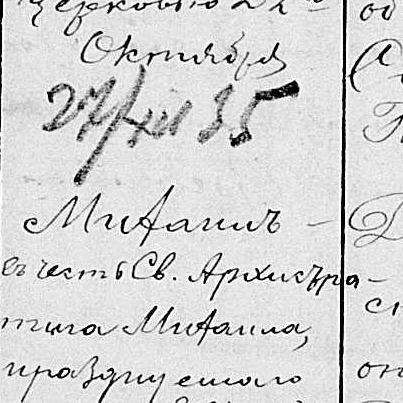 Церковью 22го
Октября
27/XII 35
Михаилъ -
въ честь Св. Архистра-
тига Михаила,
празднуемаго